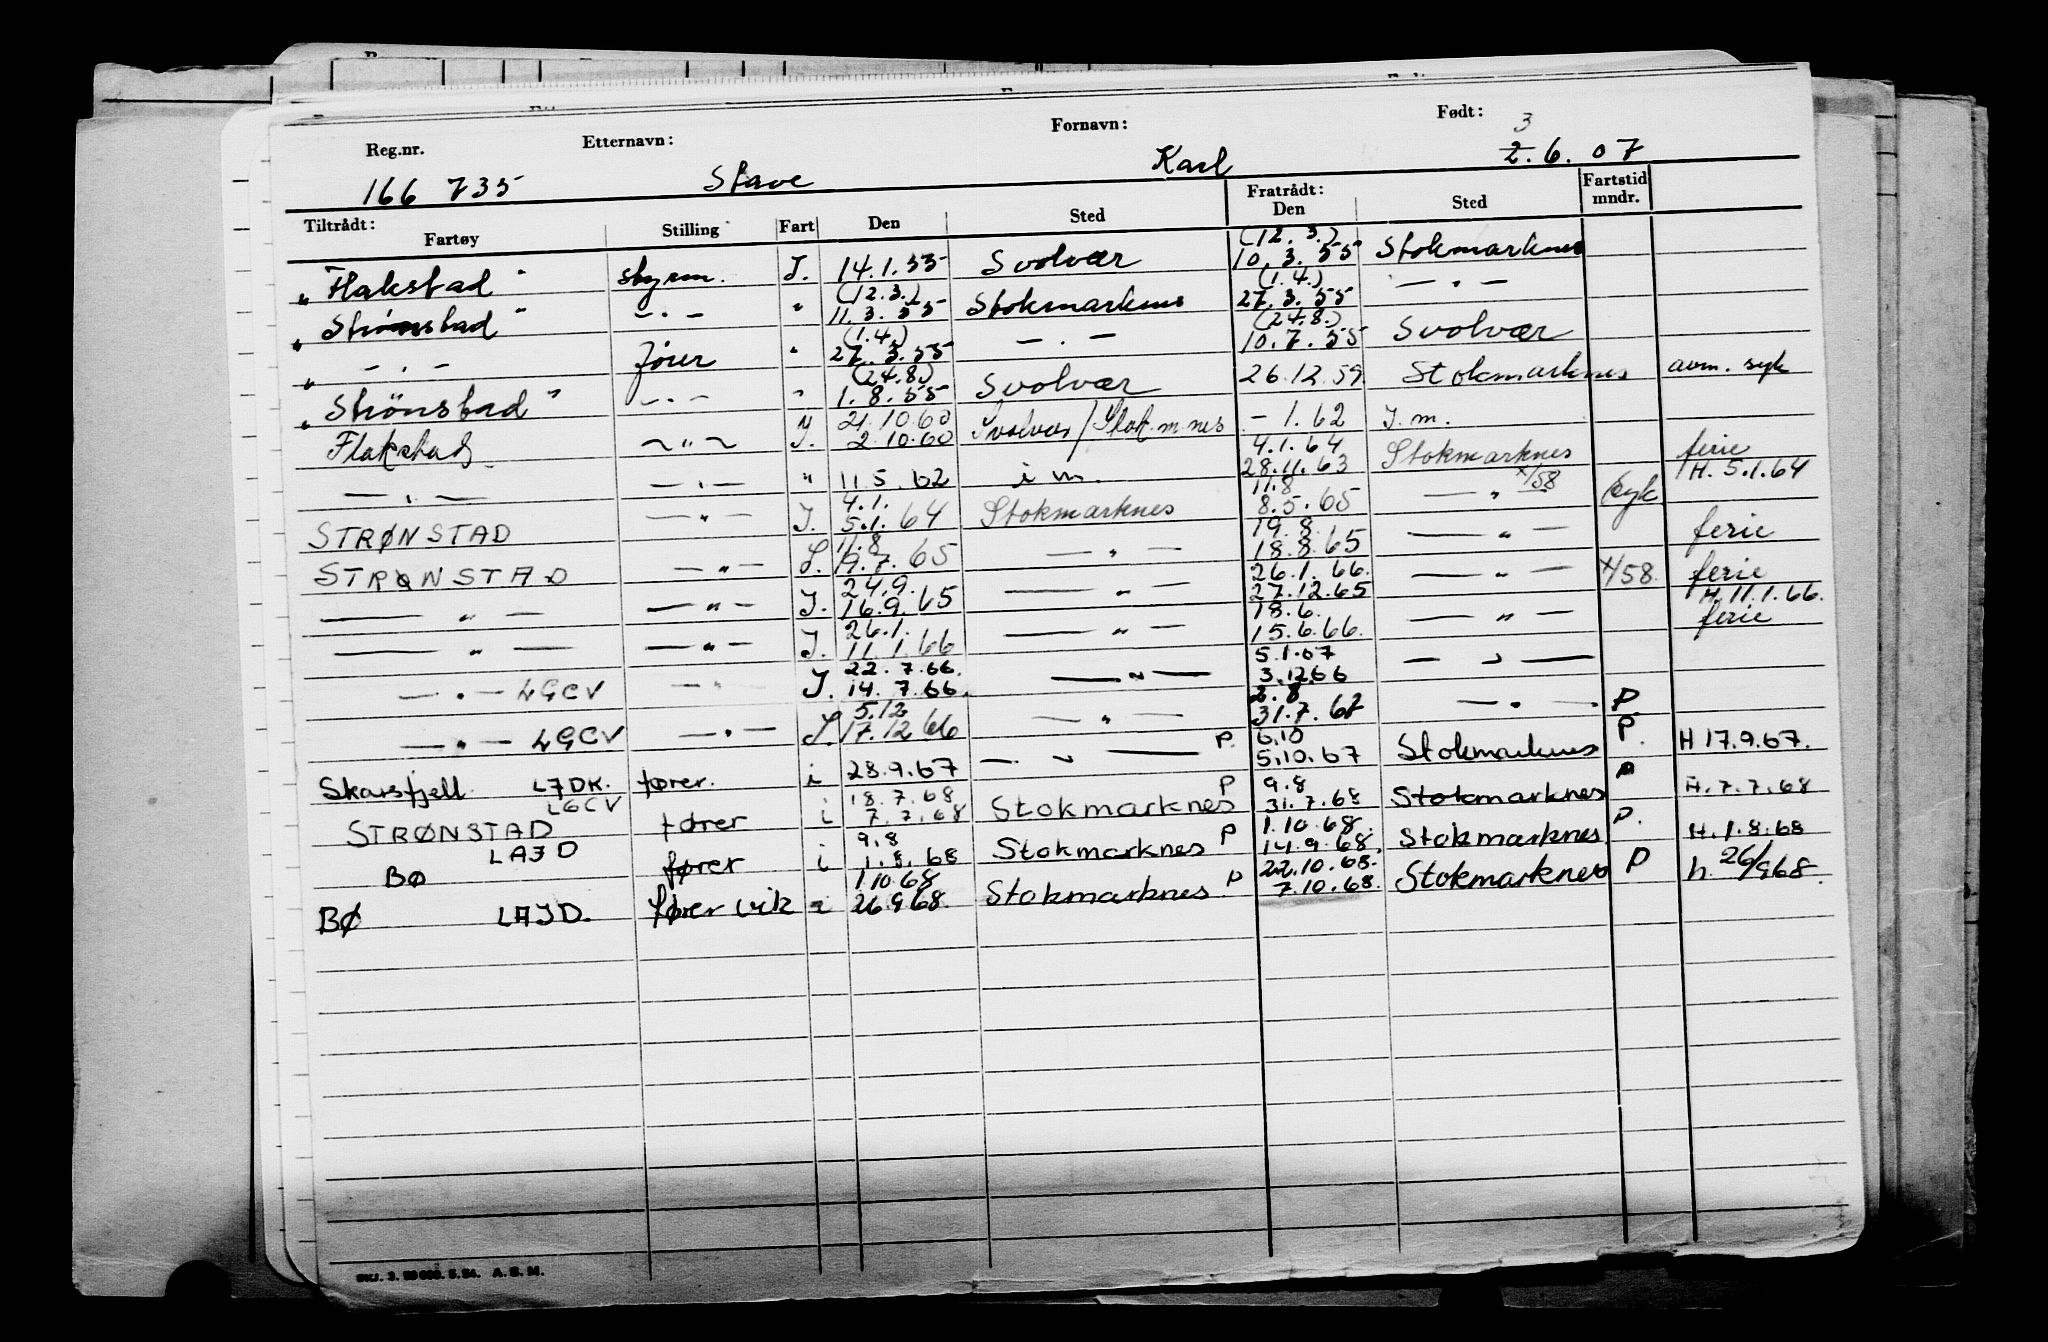 Reg.nr. Etternavn: Fornavn: Født:
166 735 Stave Karl 3 2.6.07
Tiltrådt: Fartøy Stilling Fart Den Sted Fratrådt: Den Sted Fartstid mndr.
"Flakstad" styrm. I. 14.1.55 Svolvær (12.3.) 10.3.55 Stokmarknes
"Strønstad" — " — " (12.3.) 11.3.55 Stokmarknes (1.4.) 27.3.55 — " —
" — " — fører " (1.4.) 27.3.55 — " — (24.8.) 10.7.55 Svolvær
"Strønstad" — " — " (24.8.) 1.8.55 Svolvær 26.12.59 Stokmarknes avm. syk
Flakstad — " — I. 21.10.60 2.10.60 Svolvær/Stok.m.nes - 1.62 I.m.
— " — — " — " 11.5.62 i m. 4.1.64 28.11.63 Stokmarknes ferie H. 5.1.64
STRØNSTAD — " — I. 4.1. 5.1.64 Stokmarknes 11.8 8.5.65 — " — x/58 syk
STRØNSTAD — " — I. 11.8 19.7.65 — " — 19.8. 18.8.65 — " — ferie
— " — — " — I. 24.9. 16.9.65 — " — 26.1.66. 27.12.65 — " — x/58. ferie H. 11.1.66.
— " — — " — I. 26.1. 11.1.66 — " — 18.6. 15.6.66. — " — ferie
— " — LGCV — " — I. 22.7.66. 14.7.66. — " — 5.1.67 3.12.66 — " —
— " — LGCV — " — I. 5.12 17.12.66 — " — 2.8. 31.7.67 — " — P
Skarsfjell LJDK. fører. i 28.9.67 — " — P. 6.10 5.10.67 Stokmarknes P. H 17.9.67.
STRØNSTAD LGCV fører i 18.7.68 7.7.68 Stokmarknes P 9.8 31.7.68 Stokmarknes P H. 7.7.68
BØ LAJD fører i 9.8 1.8.68 Stokmarknes P 1.10.68. 14.9.68. Stokmarknes P. H. 1.8.68
BØ LAJD. fører vik i 1.10.68 26.9.68. Stokmarknes P 22.10.68. 7.10.68. Stokmarknes P h. 26/9 68.
A. S. M.